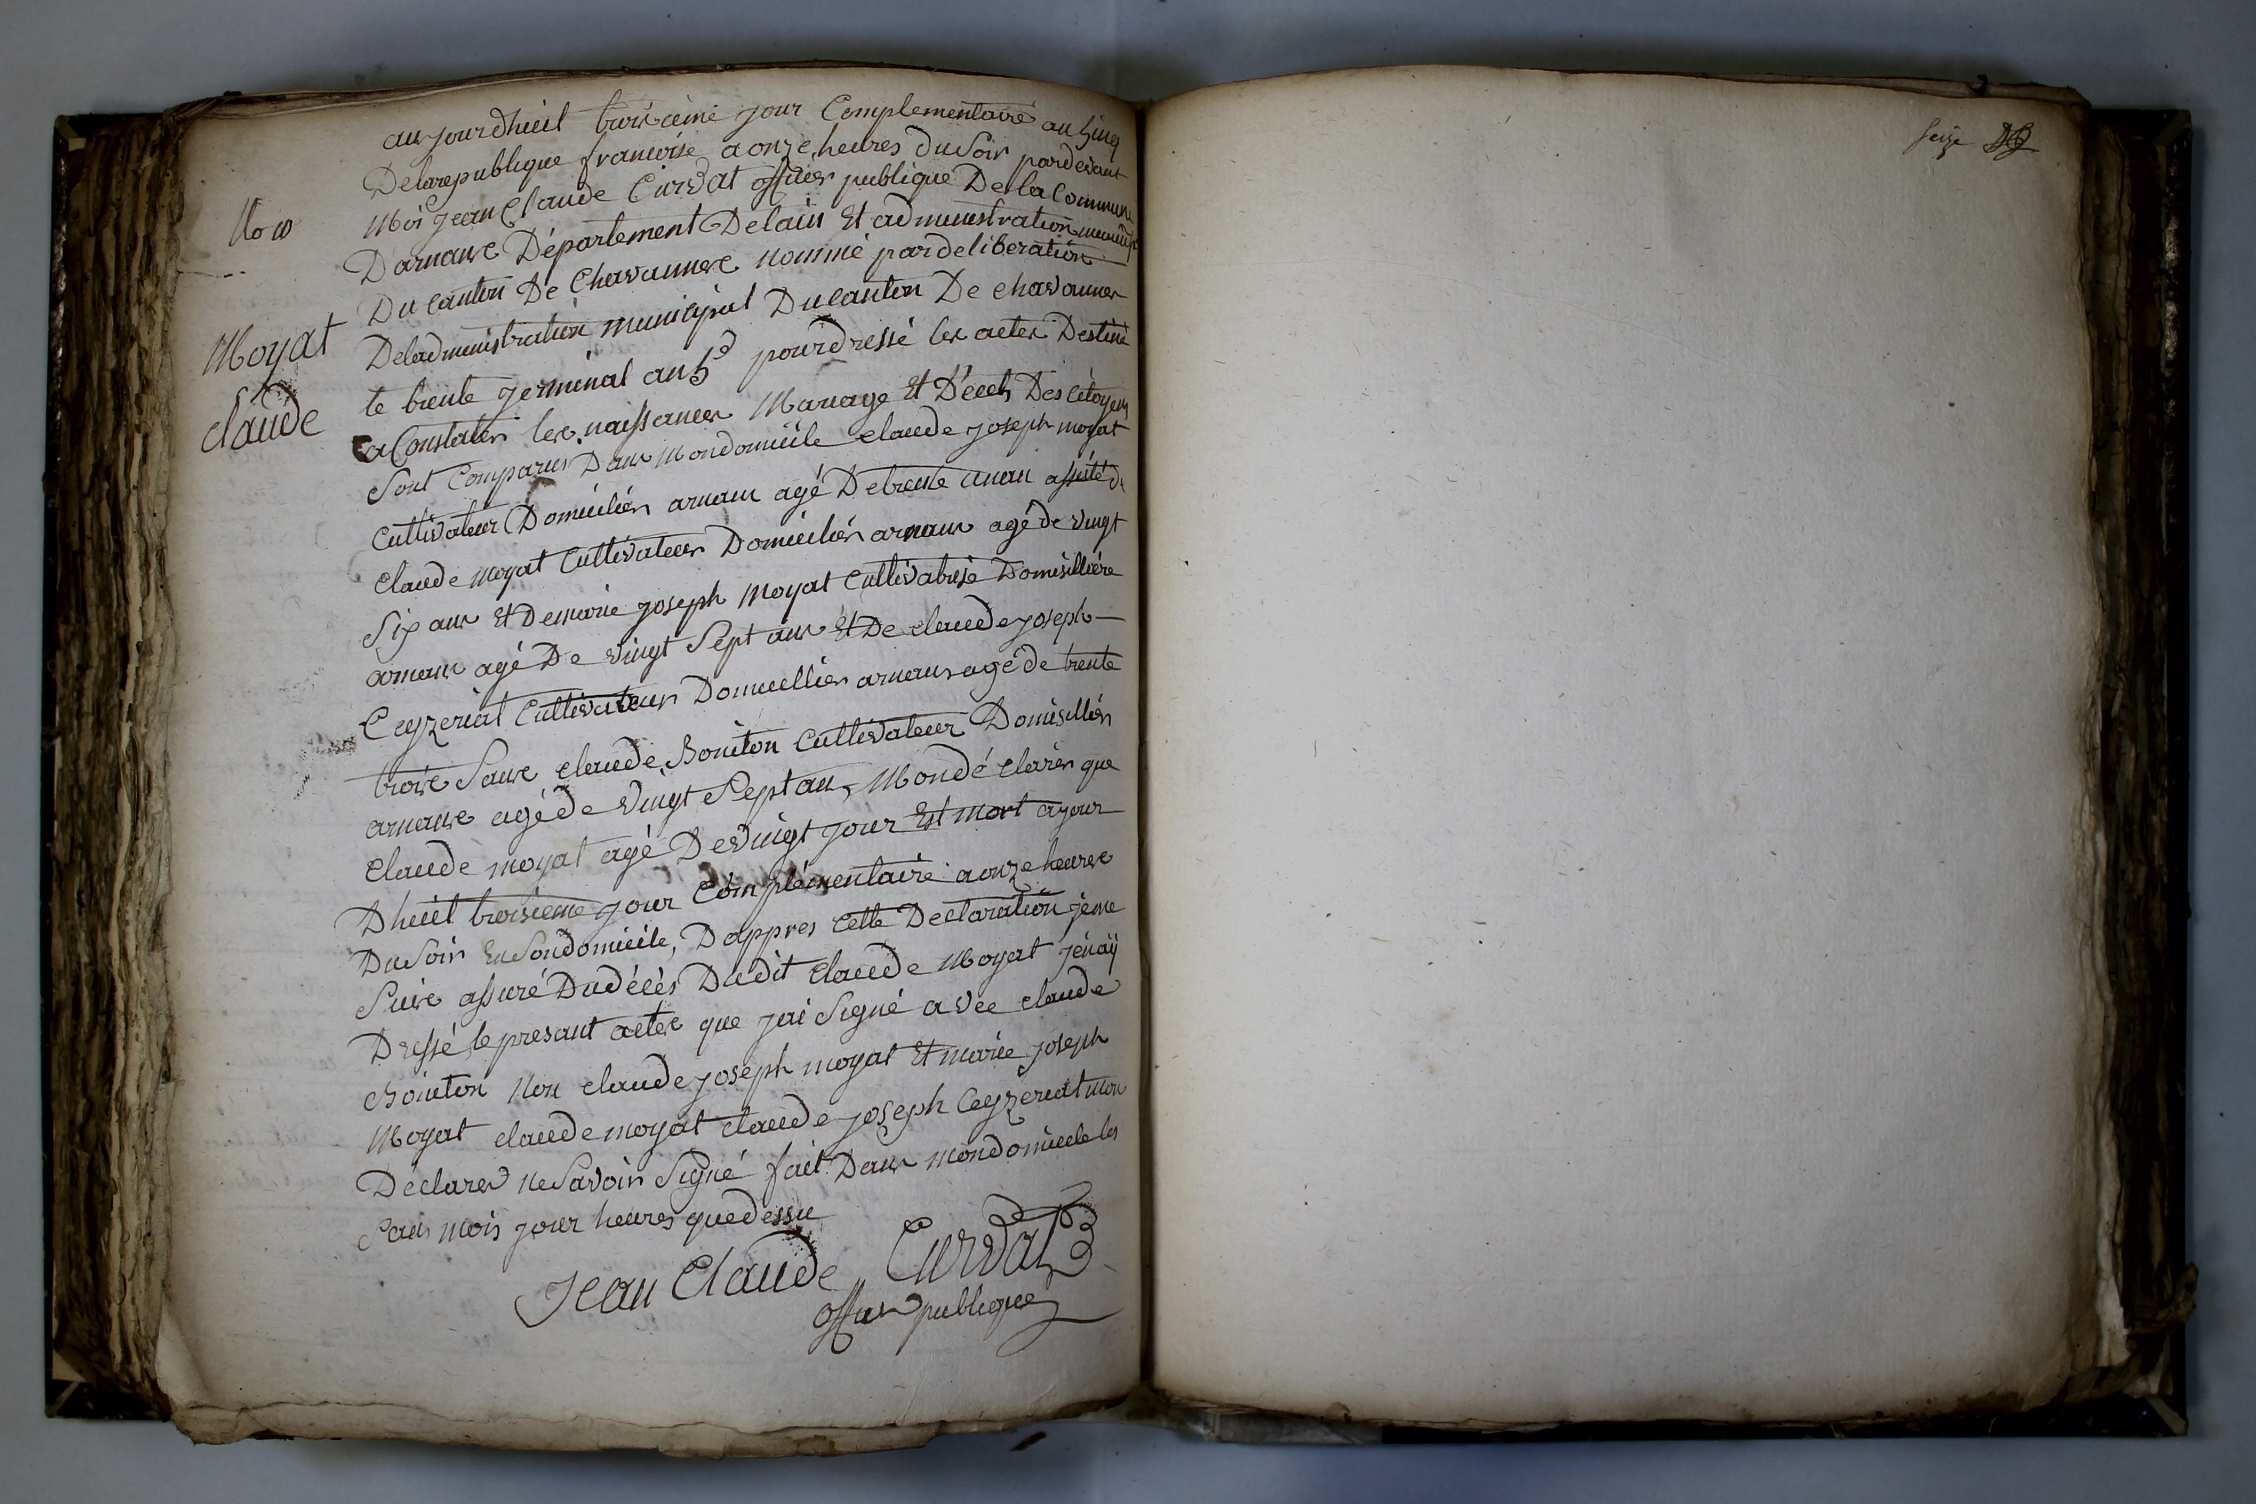 No 10
Moyat
claude
aujourdhuit troisieme jour Complementaire an Sinq
Delarepublique francoise a onze heures du Soir pardevant
Moi jean Claude Curvat officier publique De la Commune
Darnans Département Delain Et administration
Du canton De Chavannes nommé par deliberation
Deladministration municipal Du canton De chavannes
le trente germinal an 5e pour dressé les actes Destiné
a Constater les naissances Mariage Et Décets Des Citoyens
Sont Comparus Dans Mondomicile claude joseph moyat
Cultivateur Domiciliér arnans agé Detrente unan assisté De
Claude Moyat Cultivateur Domiciliér arnans agé de Vingt
Six ans Et Demarie joseph Moyat Cultivatrise Domisilliére
arnans agé De Vingt Sept ans Et De claude joseph
Ceyzeriat Cultivateur Domicilliér arnans agé de trente
trois Sans claude Bouiton Cultivateur Domisiliér
arnans agé de Vingt Sept an, Mondé clarér que
Claude moyat agé De Vingt jour Est mort a jour
Dhuit troisieme jour Complémentaire a onze heures
Du Soir En Sondomicile, Dappres Cette Declaration jeme
Suis assuré Dudécés Dudit claude Moyat jenaÿ
Dressé le presant actes que jai Signé a vec claude
Bouiton Non claude joseph moyat Et marie joseph
Moyat claude moyat claude joseph Ceyzeriat mon
Déclarer ne Savoir Signé fait Dans mondomicile les
ans mois jour heures que dessu
Jean Claude Curvat
officier publique
Seize